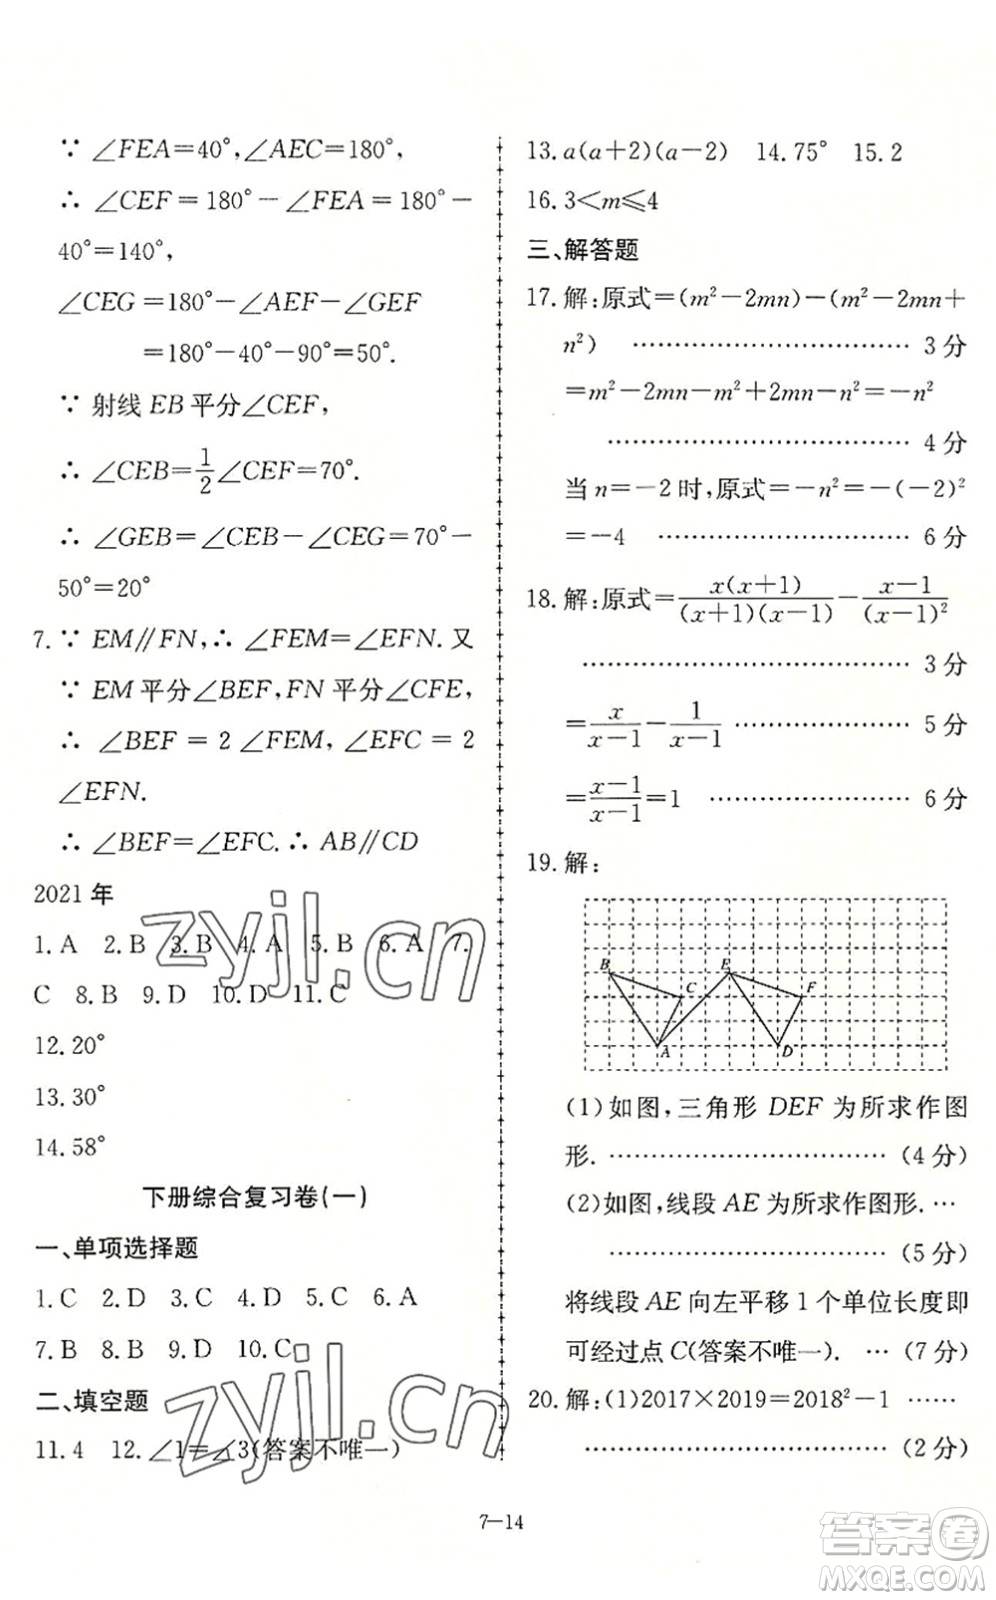 ∵ ∠FEA=40°,∠AEC=180°,
∴ ∠CEF = 180° - ∠FEA = 180° -
40°=140°,
∠CEG=180°-∠AEF-∠GEF
=180°-40°-90°=50°.
∵ 射线 EB 平分∠CEF,
∴ ∠CEB=1/2∠CEF=70°.
∴ ∠GEB=∠CEB-∠CEG=70°-
50°=20°
7. ∵ EM∥FN,∴ ∠FEM=∠EFN. 又
∵ EM 平分∠BEF,FN 平分∠CFE,
∴ ∠BEF = 2 ∠FEM, ∠EFC = 2
∠EFN.
∴ ∠BEF=∠EFC. ∴ AB∥CD
2021 年
1. A 2. B 3. B 4. A 5. B 6. A 7.
C 8. B 9. D 10. D 11. C
12. 20°
13. 30°
14. 58°
下册综合复习卷(一)
一、单项选择题
1. C 2. D 3. C 4. D 5. C 6. A
7. B 8. B 9. D 10. C
二、填空题
11. 4 12. ∠1=∠3(答案不唯一)
13. a(a+2)(a-2) 14. 75° 15. 2
16. 3<m≤4
三、解答题
17. 解:原式=(m²-2mn)-(m²-2mn+
n²) …………………………… 3 分
=m²-2mn-m²+2mn-n²=-n²
……………………………… 4 分
当 n=-2 时,原式=-n²=-(-2)²
=-4 ………………………… 6 分
18. 解:原式=x(x+1)/(x+1)(x-1)-x-1/(x-1)²
………………………………… 3 分
=x/x-1-1/x-1 ………………… 5 分
=x-1/x-1=1 …………………… 6 分
19. 解:
B E
C F
A D
(1)如图,三角形 DEF 为所求作图
形. …………………………… (4 分)
(2)如图,线段 AE 为所求作图形. …
…………………………… (5 分)
将线段 AE 向左平移 1 个单位长度即
可经过点 C(答案不唯一). … (7 分)
20. 解:(1)2017×2019=2018²-1 ……
……………………………… (2 分)
7—14
zyjl.cn
zyjl.cn
答案卷
MXQE.COM